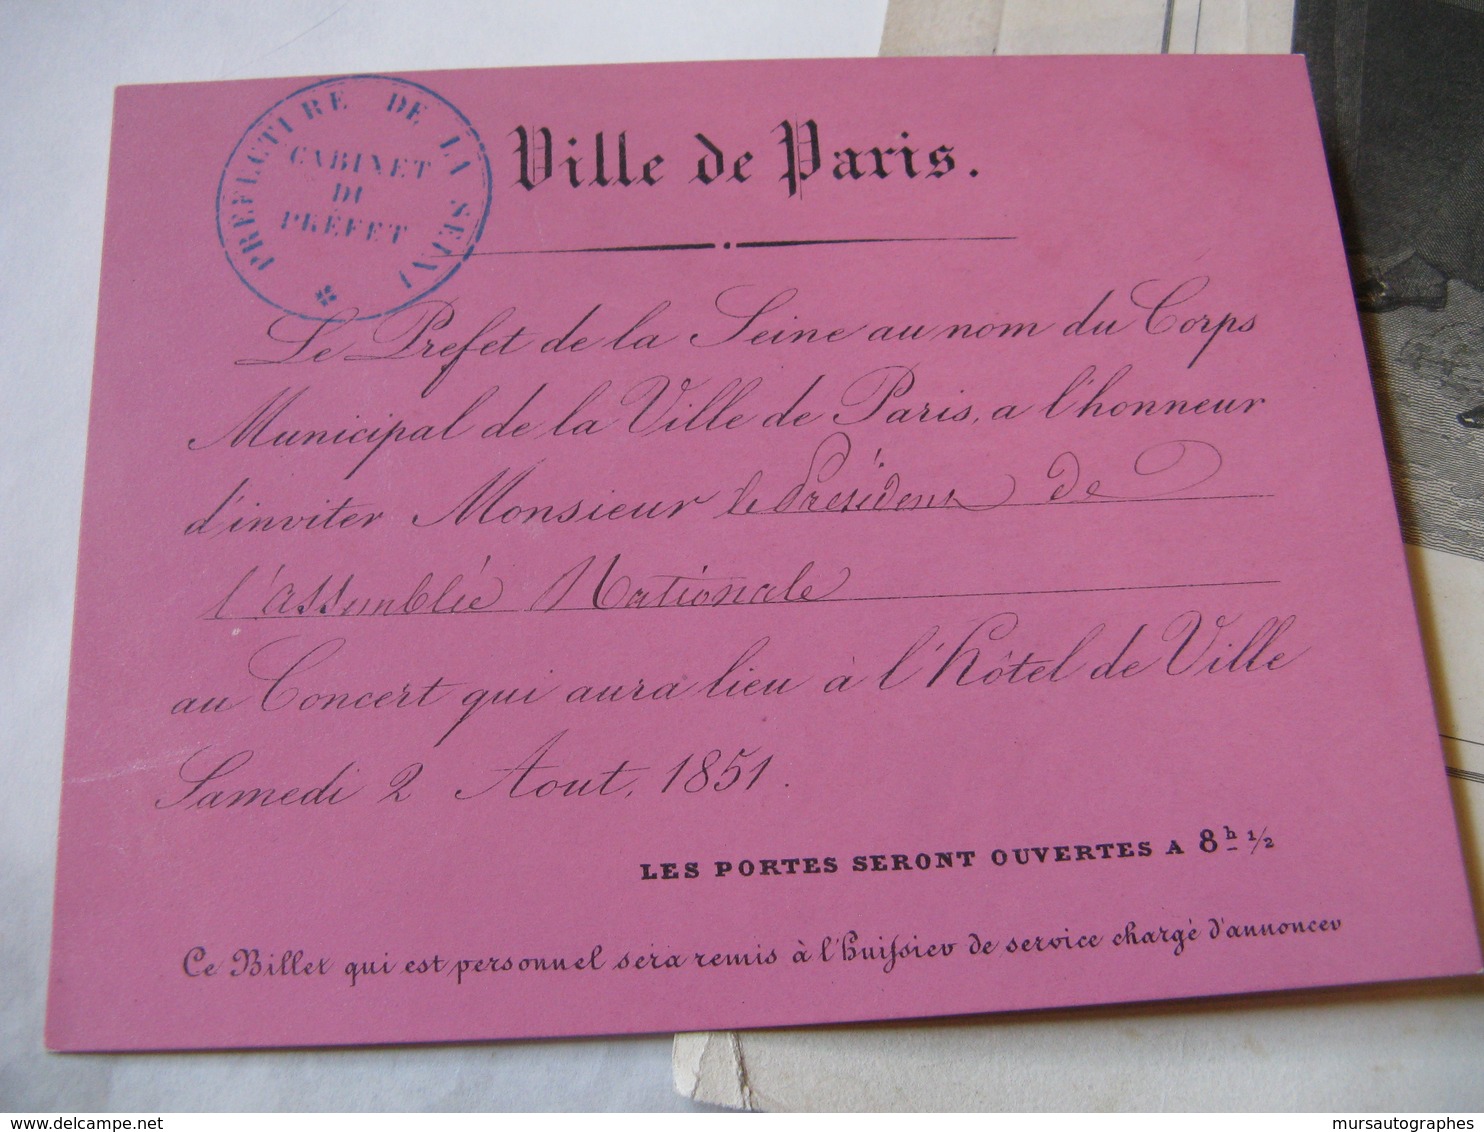 PRÉFECTURE DE LA SEINE
CABINET
DU
PRÉFET
Ville de Paris.
Le Prefet de la Seine au nom du Corps
Municipal de la Ville de Paris, a l'honneur
d'inviter Monsieur le Président de
l'assemblée Nationale
au Concert qui aura lieu à l'hôtel de Ville
Samedi 2 Aout, 1851.
LES PORTES SERONT OUVERTES A 8h 1/2
Ce Billet qui est personnel sera remis à l'huissier de service chargé d'annoncer
delcampe.net
mursautographes